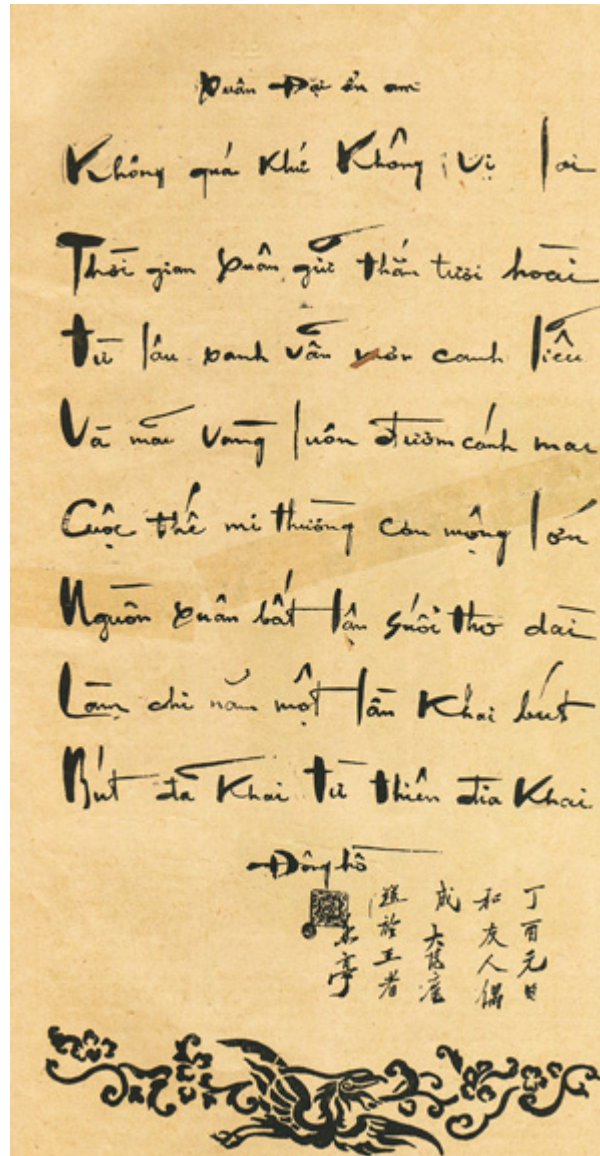 Xuân Đại ẩn am
Không quá khứ Không vị lai
Thời gian Xuân gửi thắm tươi hoài
Từ lâu xanh vẫn vờn cành liễu
Và màu vàng luôn đượm cánh mai
Cuộc thế mi thường cơn mộng lớn
Nguồn Xuân bất tận suối thơ dài
Làm chi năm một lần Khai bút
Bút đã Khai từ thiên địa Khai
Đông hồ
丁酉元日
和友人偶
成 大隱庵
於王者
亭